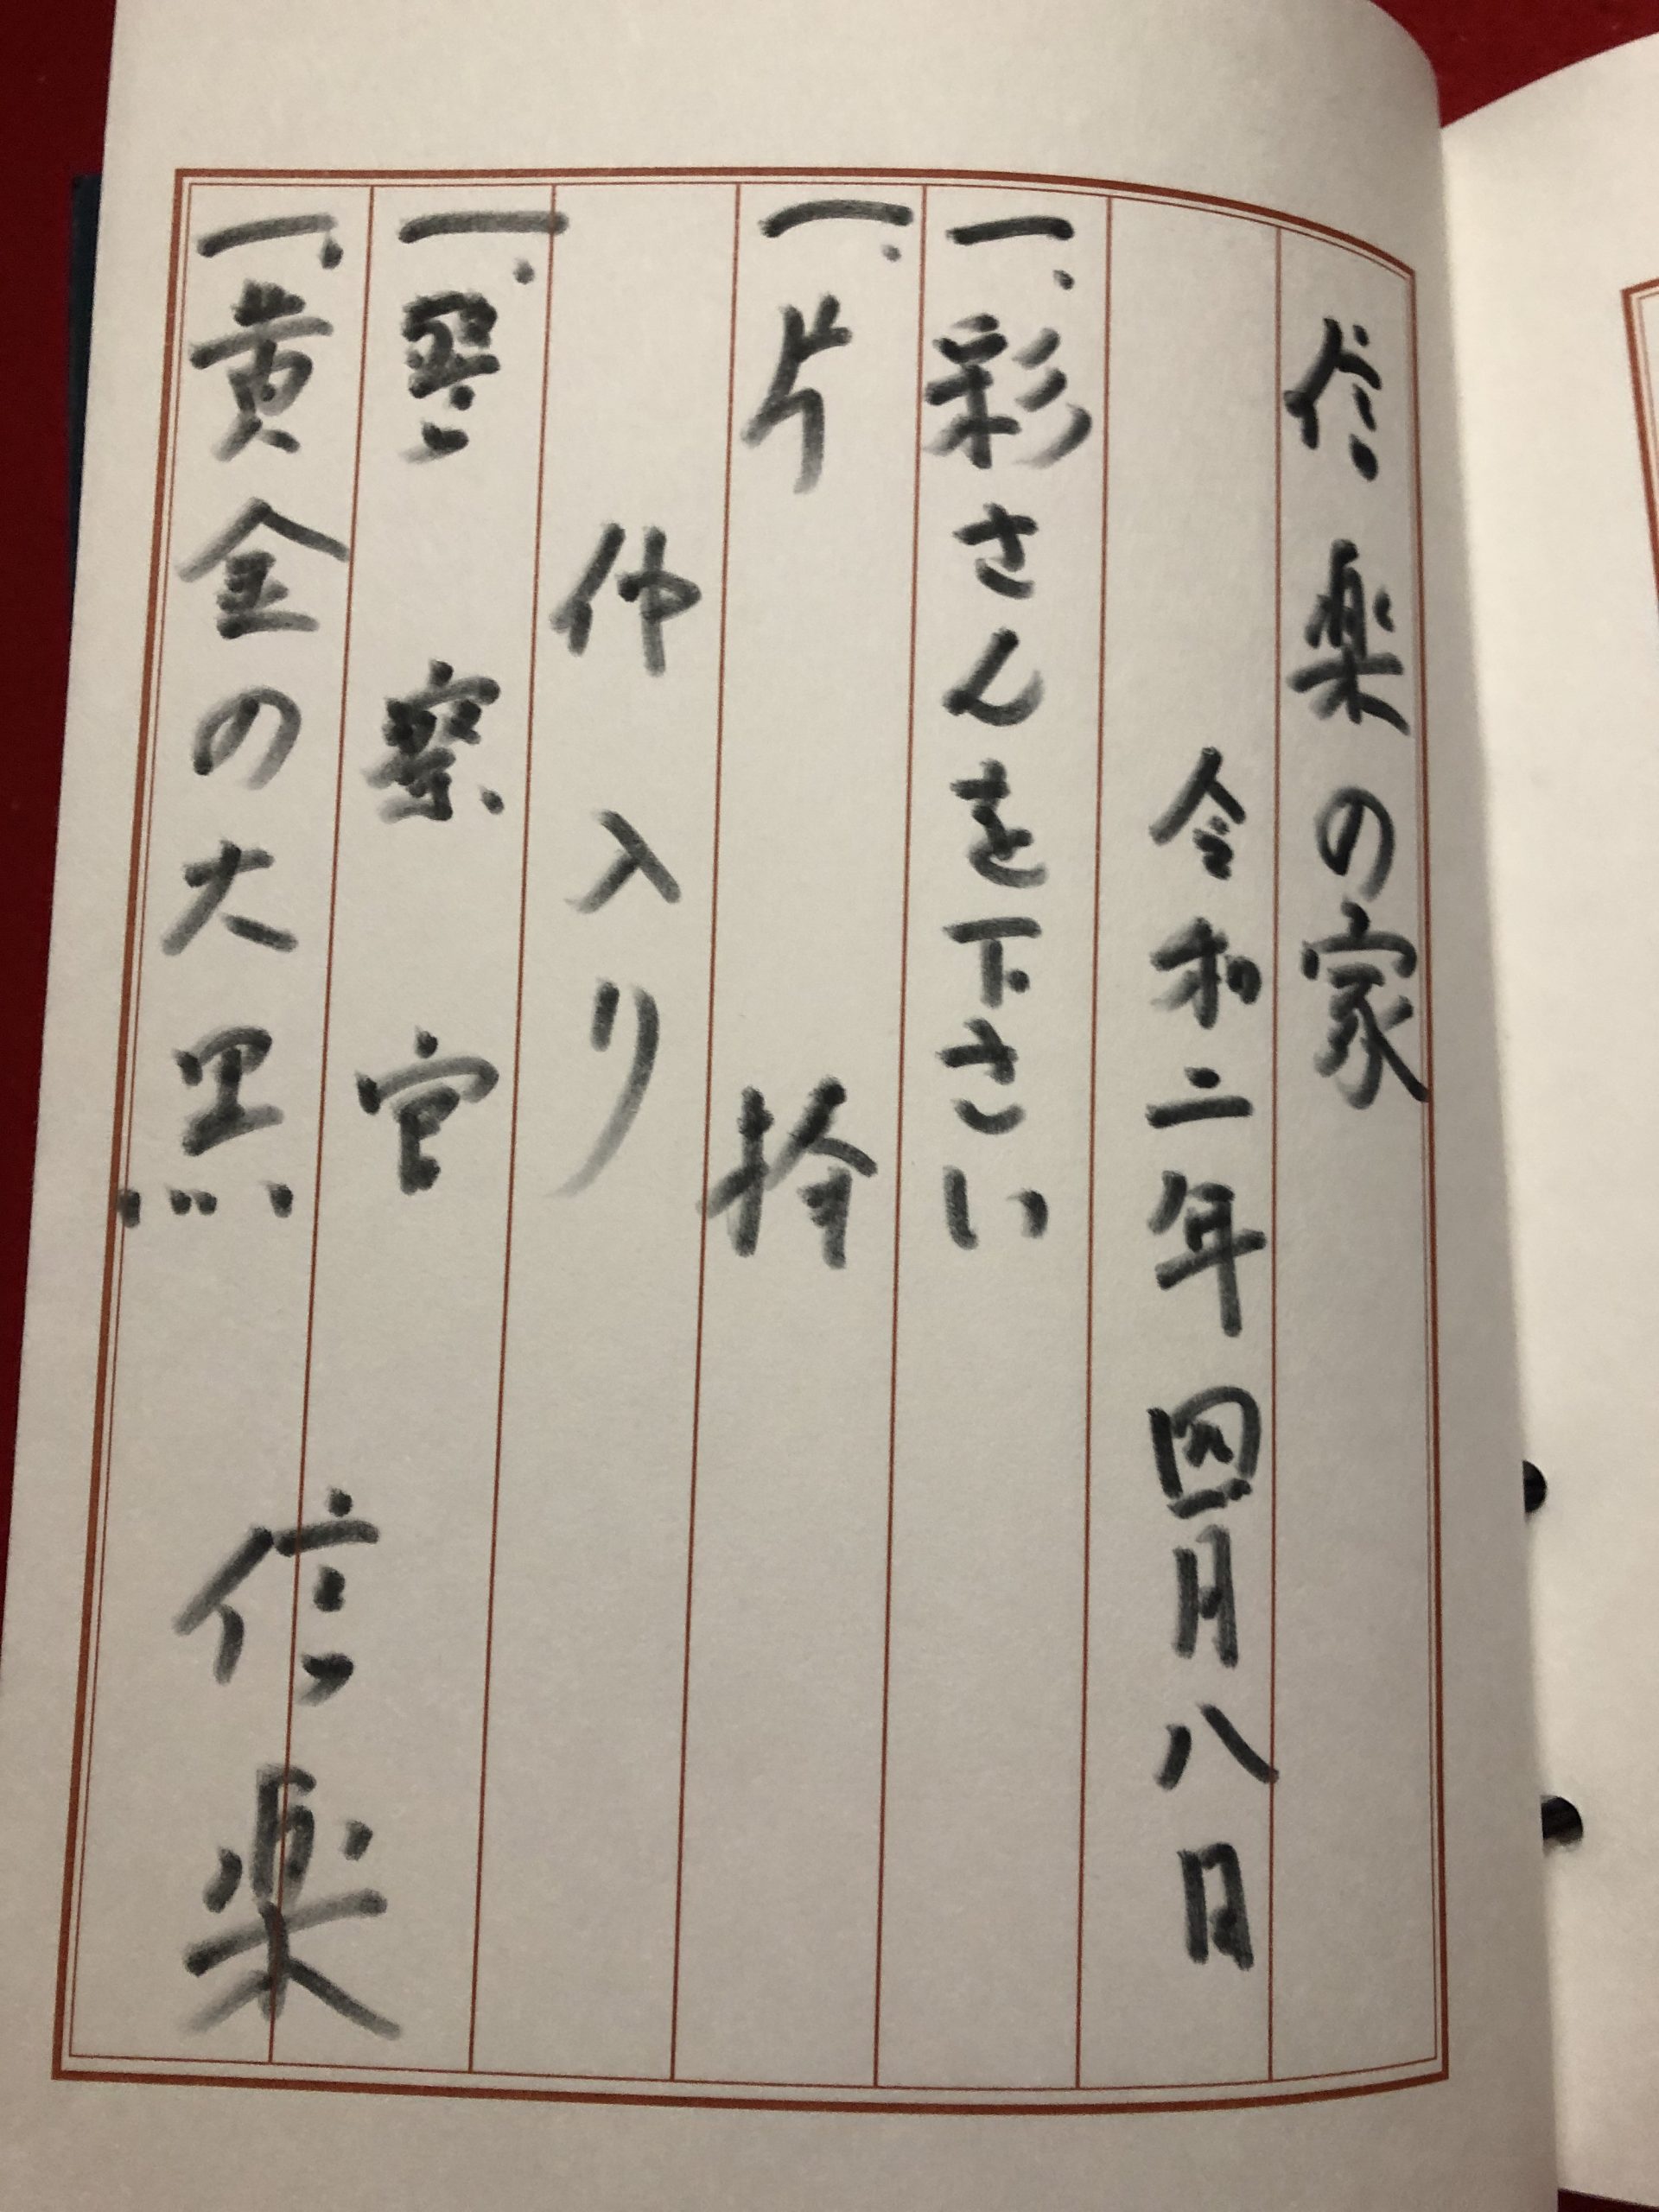 信楽の家
令和二年四月八日
一、彩さんを下さい
一、片棒
仲入り
一、警察官
一、黄金の大黒
信楽